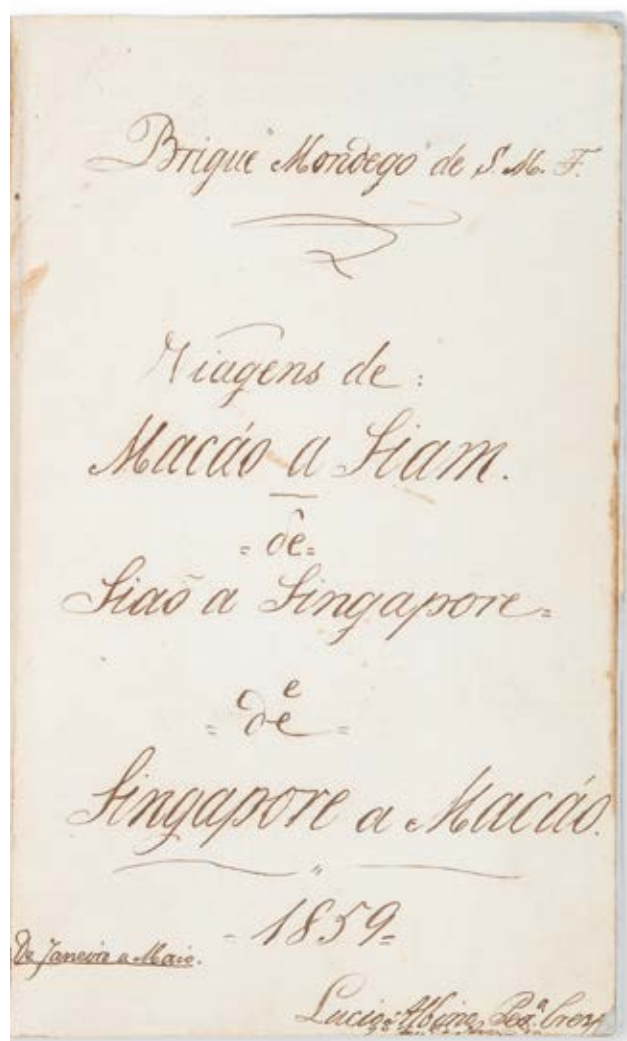 Brigue "Mondego" de S. M. F.
Viagens de:
Macáo a Siam.
= de =
Siaõ a Singapore =
e
= de =
Singapore a Macáo.
- 1859 =
De Janeiro a Maio.
Lucio Albino Per.ª Cresp